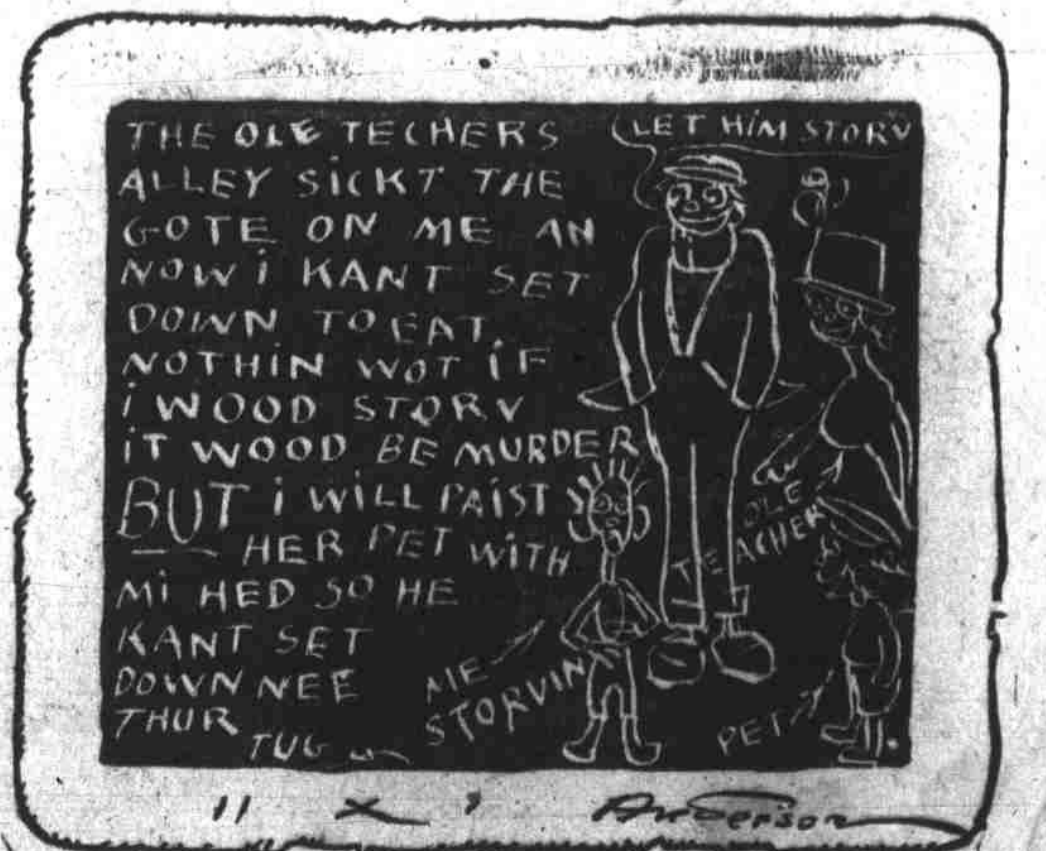 THE OLE TECHERS
ALLEY SICKT THE
GOTE ON ME AN
NOW i KANT SET
DOWN TO EAT
NOTHIN WOT IF
i WOOD STORV
IT WOOD BE MURDER
BUT i WILL PAIST
HER PET WITH
Mi HED SO HE
KANT SET
DOWN NEE
THUR
TUG
LET HIM STORV
OLE
TEACHER
ME
STORVIN
PET
Anderson